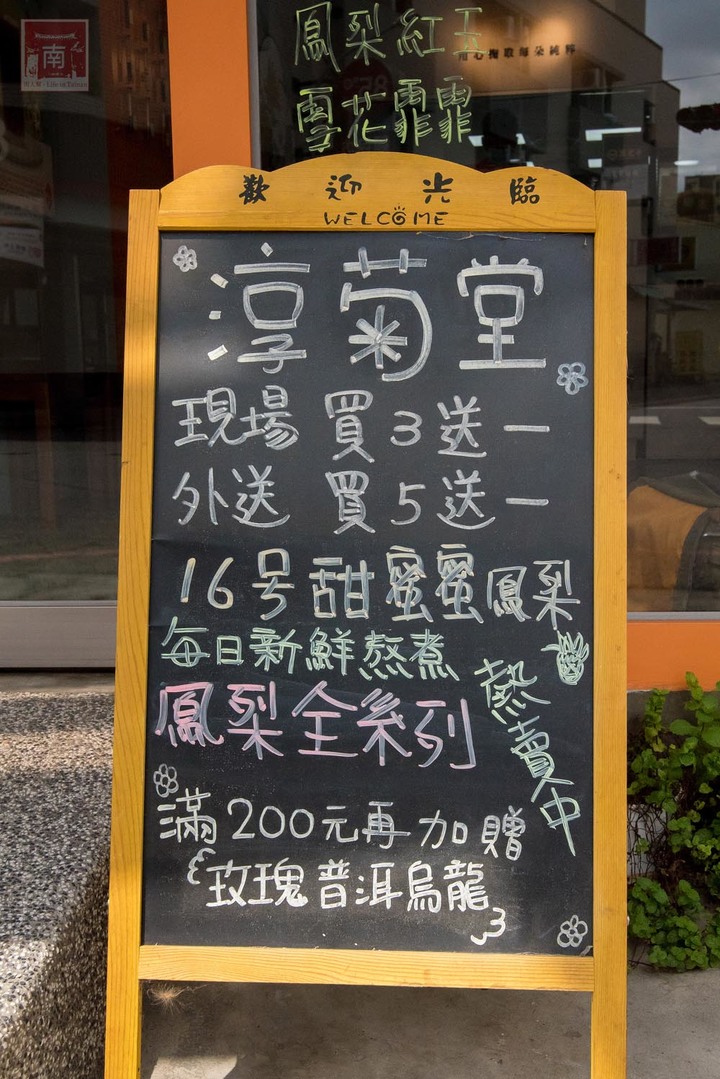 南
鳳梨紅玉
雪花霏霏
歡迎光臨
WELCOME
淳菊堂
現場 買3送一
外送 買5送一
16号甜蜜蜜鳳梨
每日新鮮熬煮
鳳梨全系列
熱賣中
滿200元再加贈
玫瑰普洱烏龍